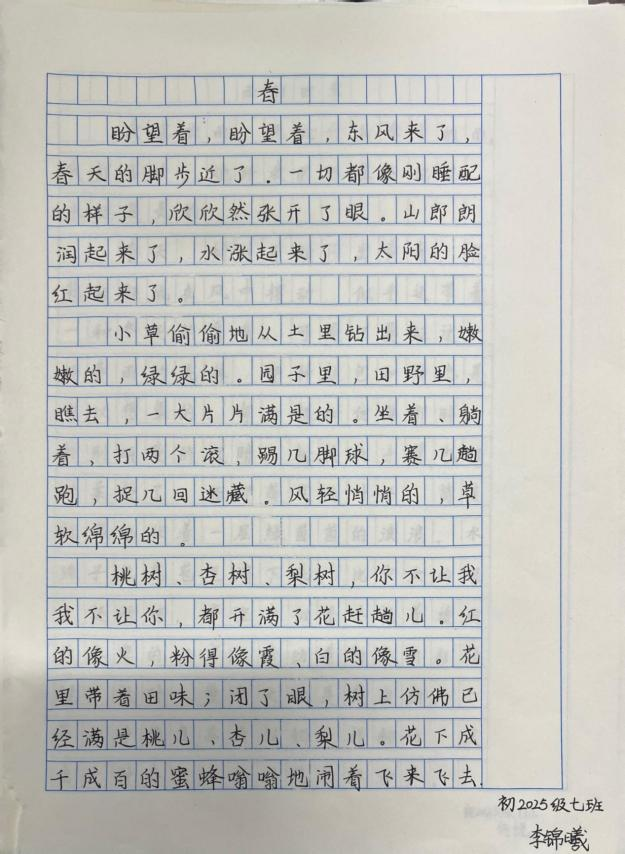 春
盼望着，盼望着，东风来了，
春天的脚步近了．一切都像刚睡配
的样子，欣欣然张开了眼。山郎朗
润起来了，水涨起来了，太阳的脸
红起来了。
小草偷偷地从土里钻出来，嫩
嫩的，绿绿的。园子里，田野里，
瞧去，一大片片满是的。坐着、躺
着，打两个滚，踢几脚球，赛几趟
跑，捉几回迷藏。风轻悄悄的，草
软绵绵的。
桃树、杏树、梨树，你不让我
我不让你，都开满了花赶趟儿．红
的像火，粉得像霞、白的像雪。花
里带着田味；闭了眼，树上仿佛已
经满是桃儿、杏儿、梨儿。花下成
千成百的蜜蜂嗡嗡地闹着飞来飞去．
初2025级七班
李锦曦